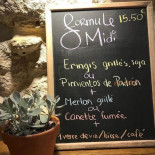 Formule 15.50€
Midi
Eringis grillés, soja
ou
Pimientos de Padrón
+
Merlan grillé
ou
Canette fumée
+
1 verre de vin/bière/café